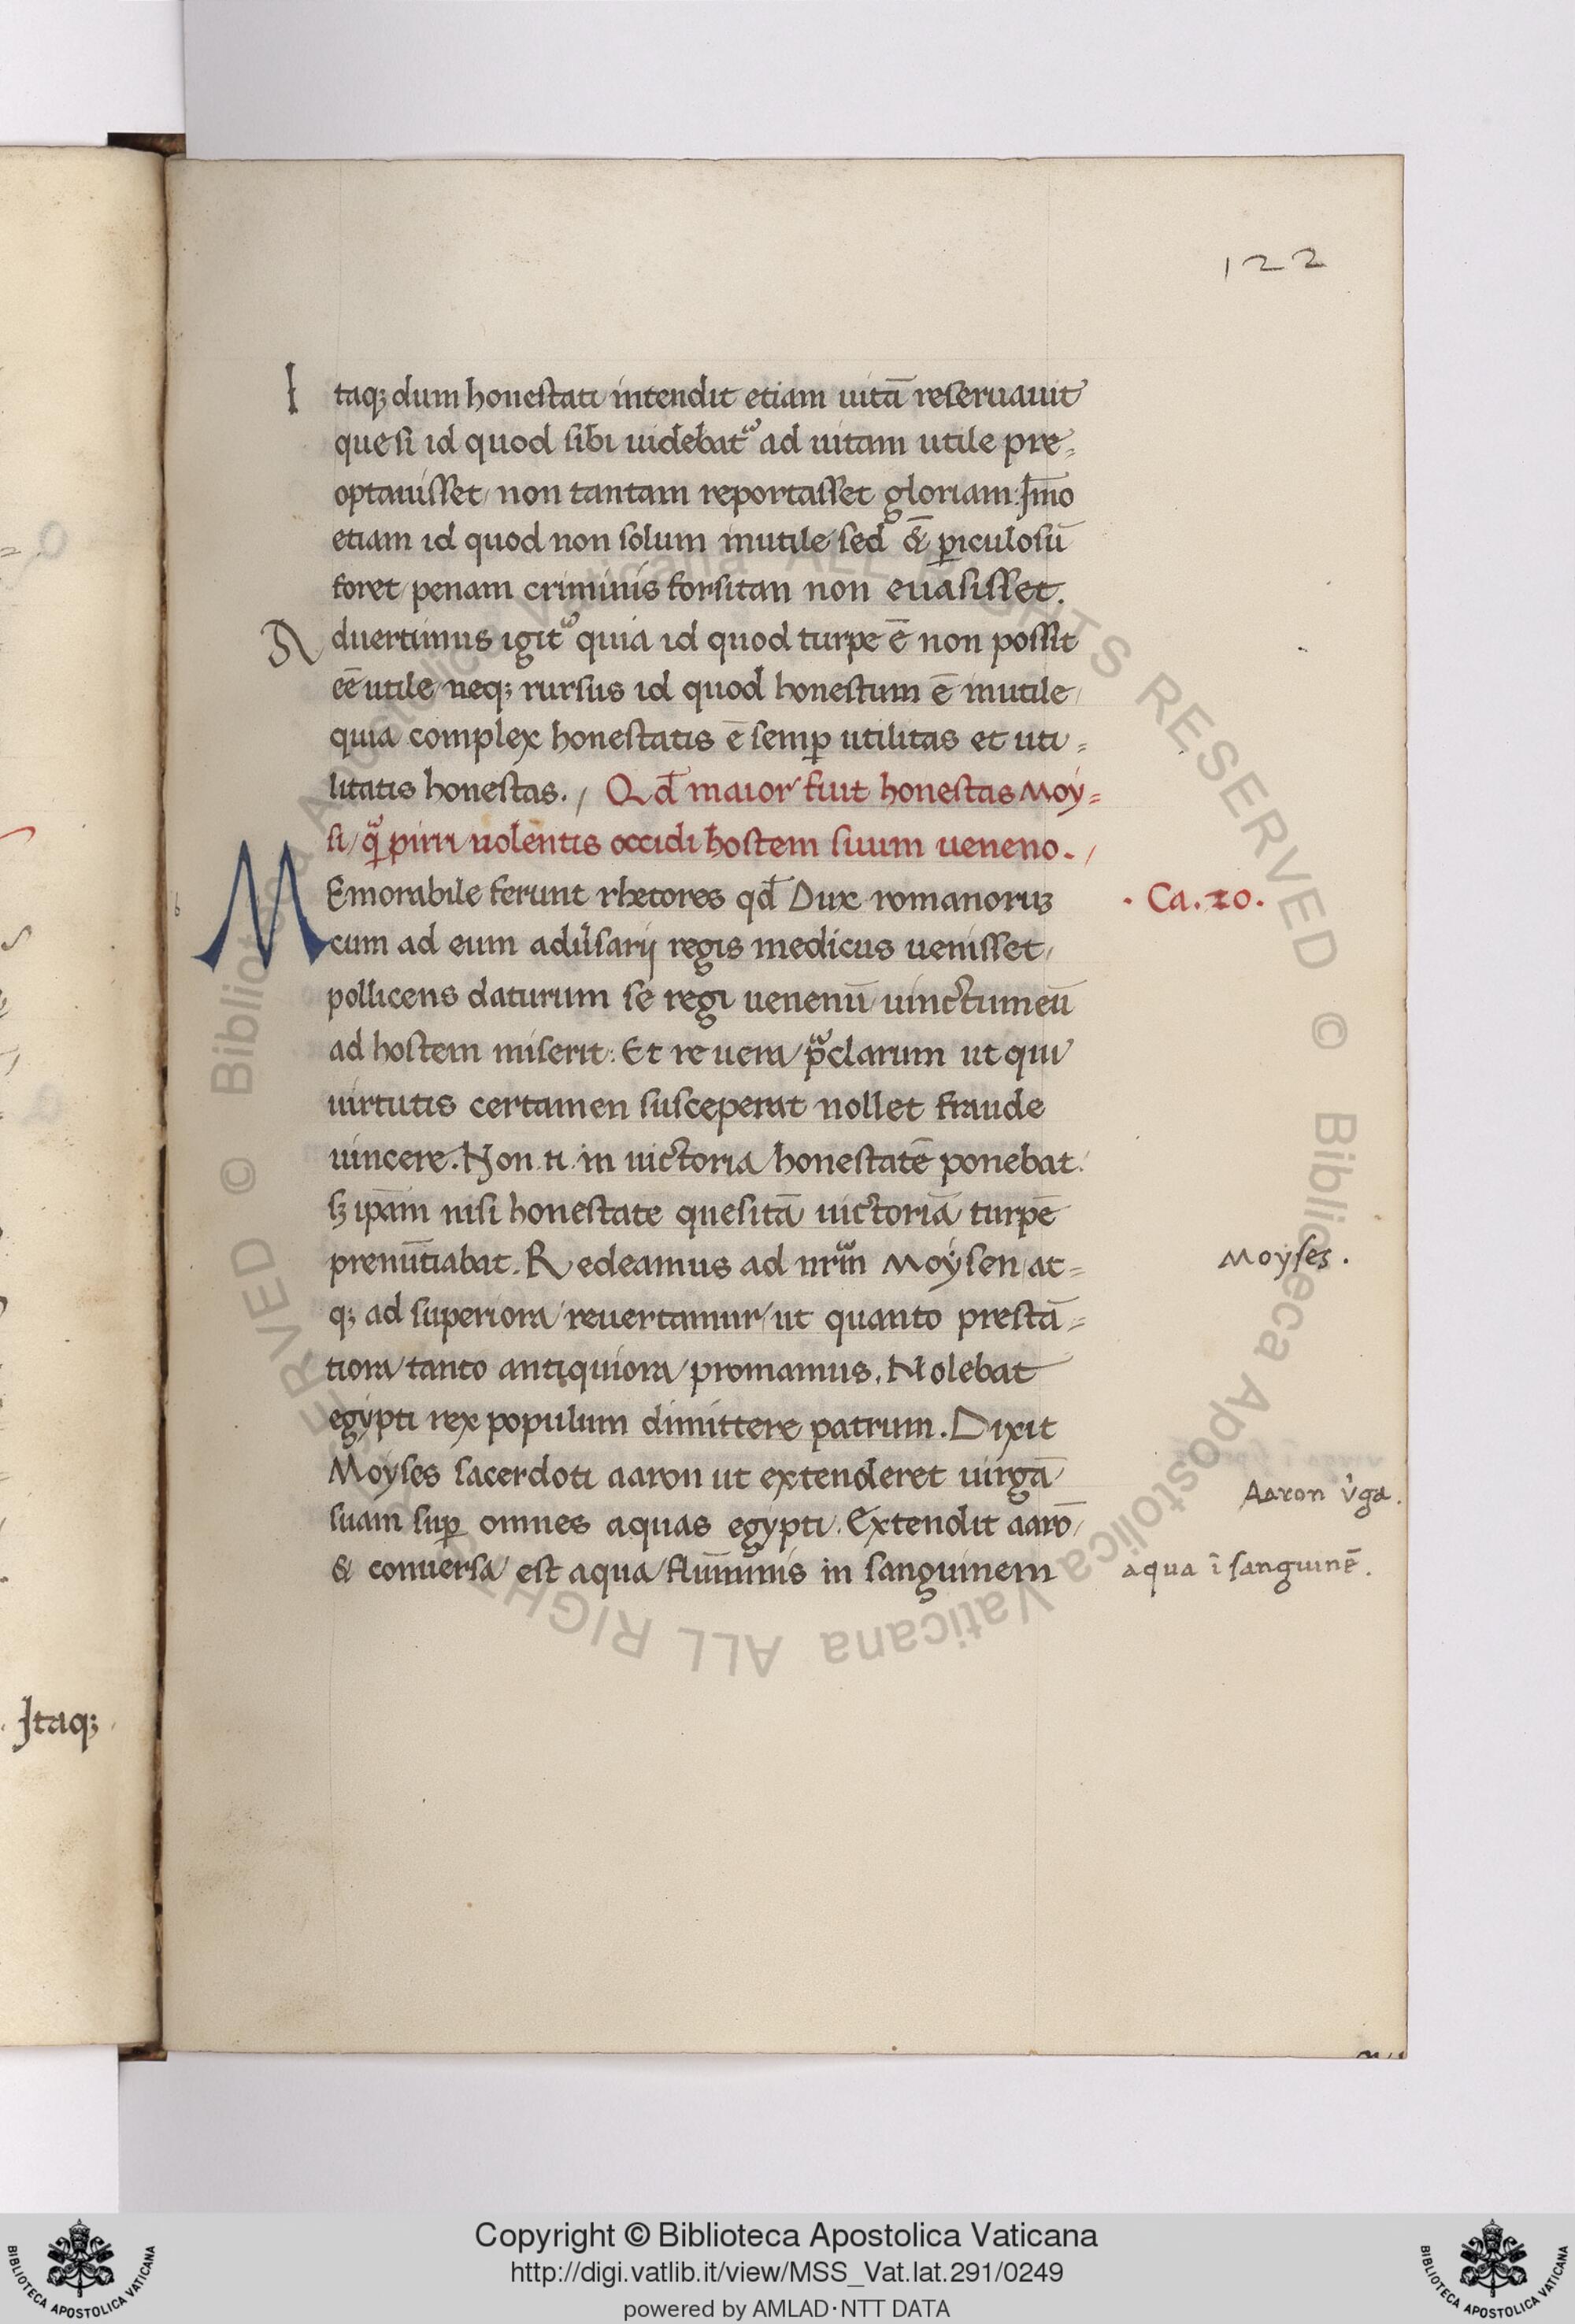 122
Itaq; dum honestati intendit etiam uitā reseruauit
que si id quod sibi uidebat᷑ ad uitam utile pre=
optauisset/ non tantam reportasset gloriam: Jm̄o
etiam id quod non solum inutile sed &̄ ꝑiculosū
foret/ penam criminis forsitan non euasisset.
Aduertimus igit᷑ quia id quod turpe ē non possit
eē utile/ neq; rursus id quod honestum ē inutile/
quia complex honestatis ē semꝑ utilitas et uti=
litatis honestas./ Qd̄ maior fuit honestas Moy=
si/ qᷓ pirri uolentis occidi hostem suum ueneno./
MEmorabile ferunt rhetores qd̄ Dux romanoruꝫ
· Ca.20.
cum ad eum adu̓sarij regis medicus uenisset/
pollicens daturum se regi uenenū/ uinctum eū
ad hostem miserit: Et re uera/ pᷓclarum ut qui
uirtutis certamen susceperat nollet fraude
uincere. Non .n. in uictoria honestatē ponebat:
sꝫ ip̄am nisi honestate quesitā uictoriā turpē
prenūtiabat. Redeamus ad nrm̄ Moysen/ at=
Moyses.
q; ad superiora reuertamur/ ut quanto prestā=
tiora/ tanto antiquiora/ promamus. Nolebat
egypti rex populum dimittere patrum. Dixit
Moyses sacerdoti aaron ut extenderet uirgā
Aaron v̓ga.
suam suꝑ omnes aquas egypti. Extendit aarō/
& conuersa est aqua fluminis in sanguinem
aqua ī sanguinē.
Jtaq;
Copyright © Biblioteca Apostolica Vaticana
http://digi.vatlib.it/view/MSS_Vat.lat.291/0249
powered by AMLAD·NTT DATA
BIBLIOTECA APOSTOLICA VATICANA
BIBLIOTECA APOSTOLICA VATICANA
© Biblioteca Apostolica Vaticana ALL RIGHTS RESERVED © Biblioteca Apostolica Vaticana ALL RIGHTS RESERVED